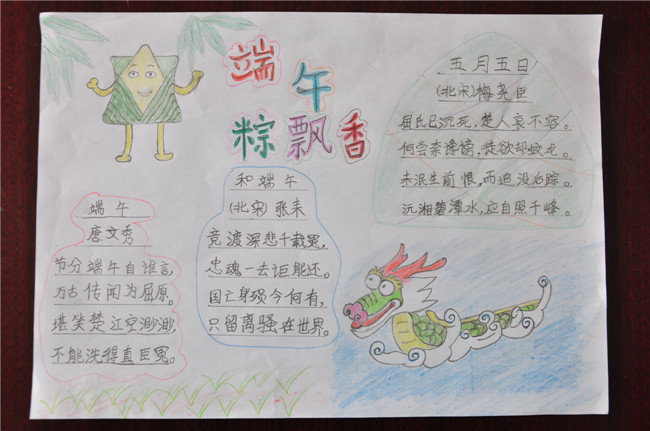 端午
粽飘香
五月五日
(北宋)梅尧臣
屈氏已沉死,楚人哀不容。
何尝奈谗谤,徒欲却蛟龙。
未泯生前恨,而追没后踪。
沅湘碧潭水,应自照千峰。
和端午
(北宋)张耒
竞渡深悲千载冤,
忠魂一去讵能还。
国亡身殒今何有,
只留离骚在世界。
端午
唐文秀
节分端午自谁言,
万古传闻为屈原。
堪笑楚江空渺渺,
不能洗得直臣冤。